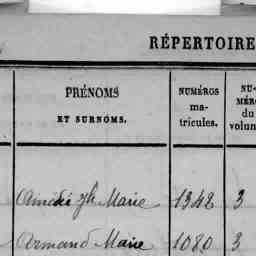 RÉPERTOIRE
PRÉNOMS
ET SURNOMS.
NUMÉROS
ma-
tricules.
NU-
MÉR
du
volun
Amédée Jh Marie 1342 3
Armand Marie 1080 3